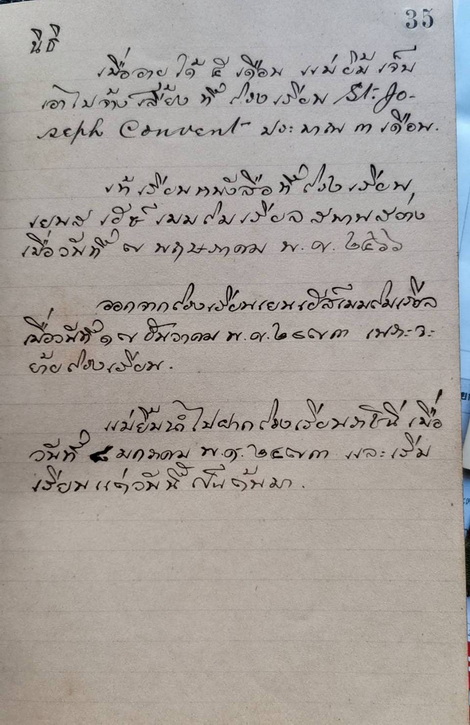 35
นิธิ
เมื่ออายุได้ ๕ เดือน แม่ยิ้ม เจ็บ
เอาไปจ้างเลี้ยง ที่โรงเรียน St. Jo-
seph Convent ประมาณ ๓ เดือน.
เข้าเรียนหนังสือที่โรงเรียน
เยนส เฮซ์ เมมโมเรียล สพานสว่าง
เมื่อวันที่ ๗ พฤษภาคม พ.ศ.
ออกจากโรงเรียนเยนเฮส์เมมโมเรียล
เมื่อวันที่ ๑๗ ธันวาคม พ.ศ. ๒๔๗๓ เพราะจะ
ย้ายโรงเรียน.
แม่ยิ้มนำไปฝากโรงเรียนราชินี เมื่อ
วันที่ ๘ มกราคม พ.ศ. ๒๔๗๓ และเริ่ม
เรียนแต่วันนี้เป็นต้นมา.